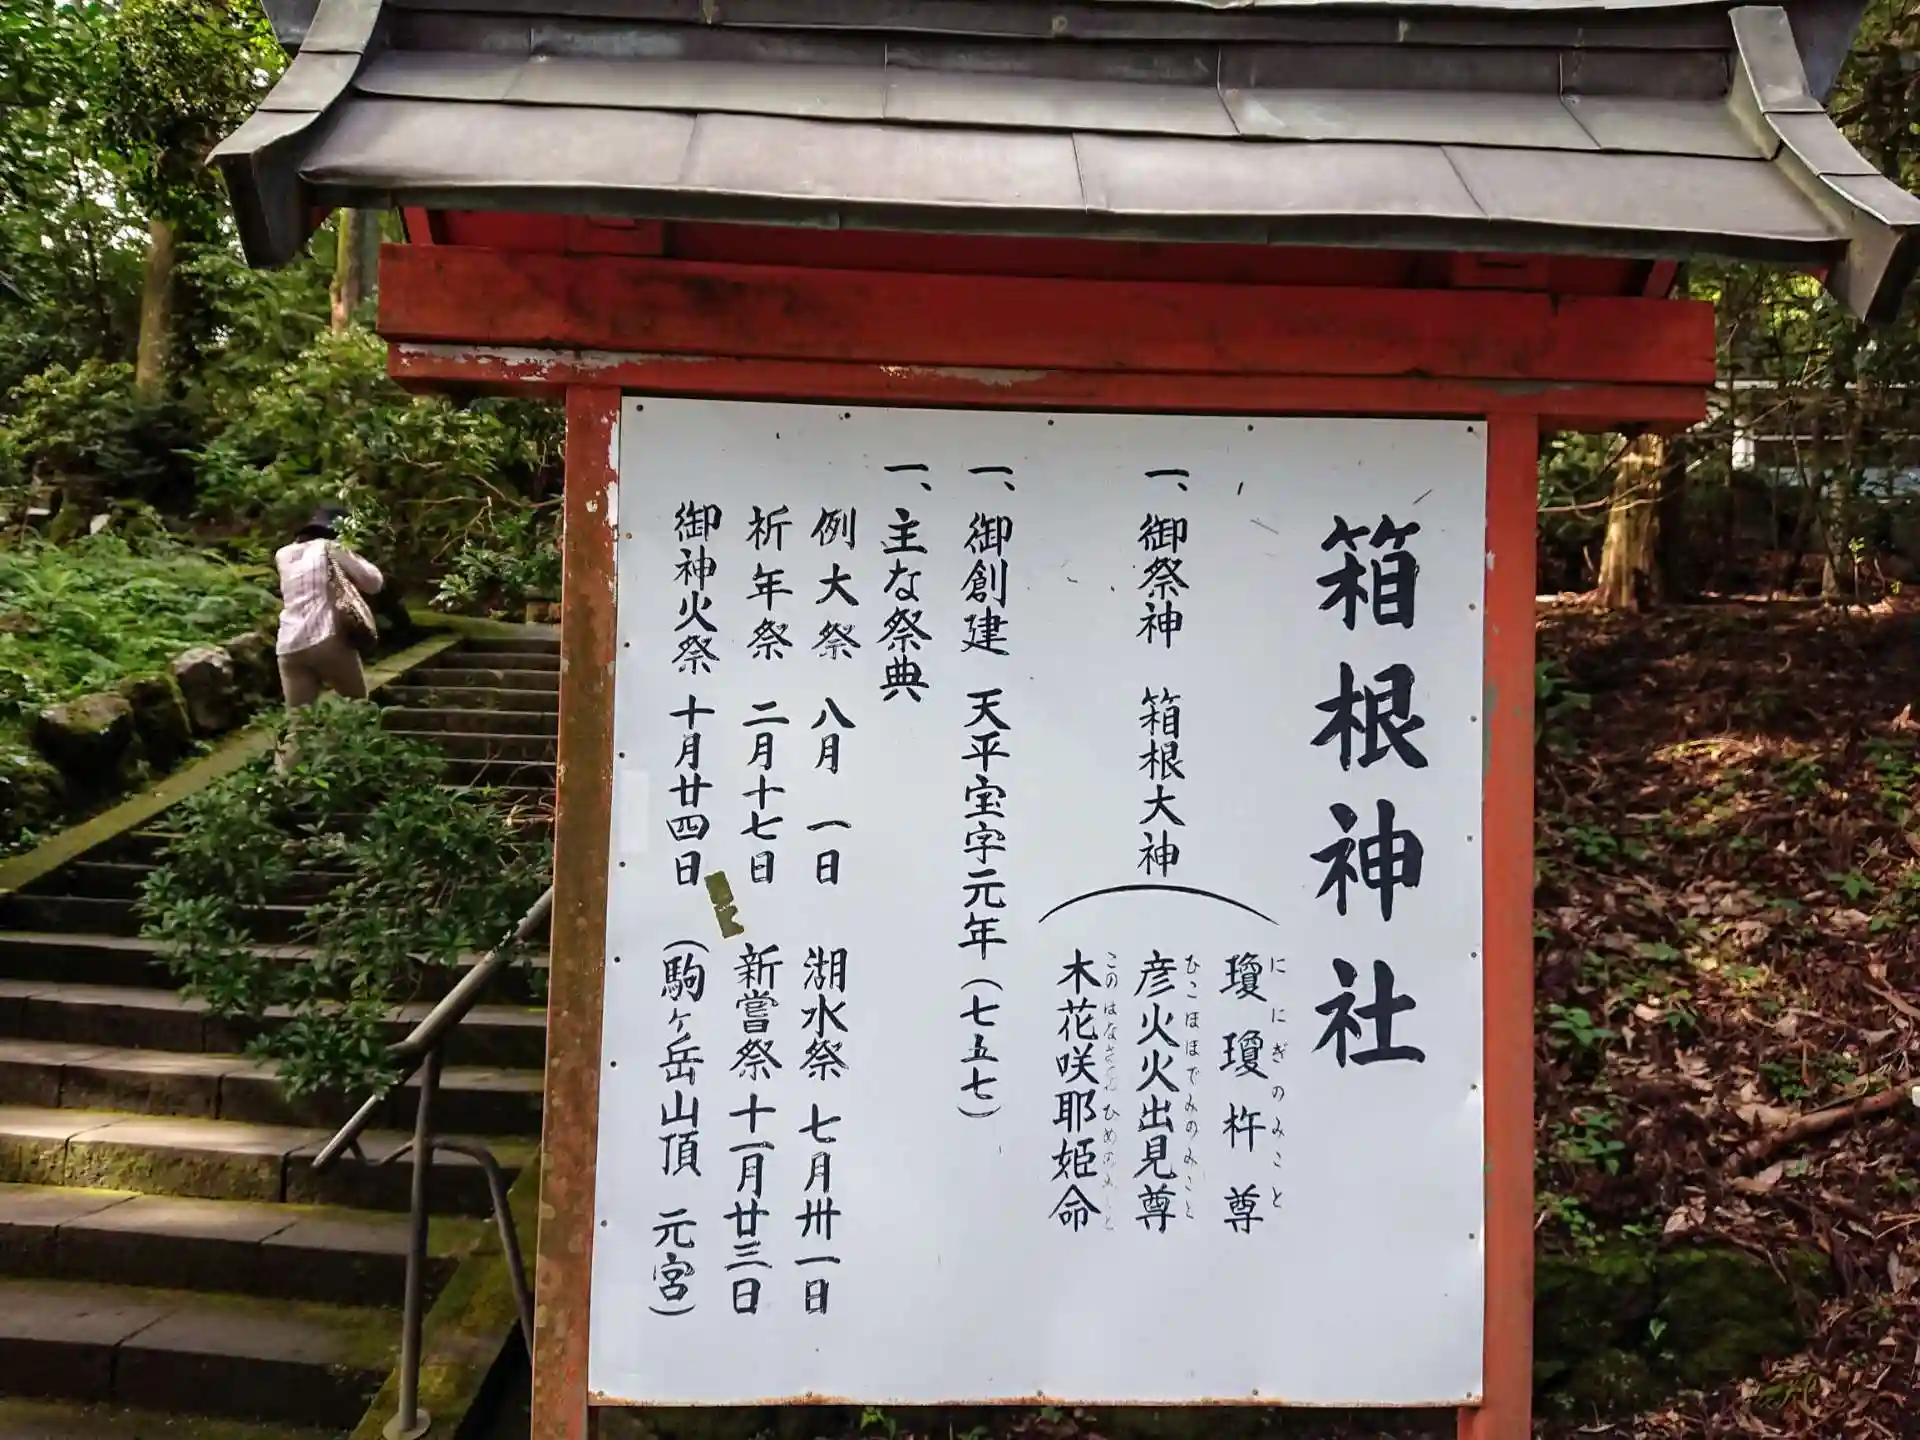 箱根神社
一、御祭神 箱根大神
瓊瓊杵尊
ににぎのみこと
彦火火出見尊
ひこほほでみのみこと
木花咲耶姫命
このはなさくやひめのみこと
一、御創建 天平宝字元年(七五七)
一、主な祭典
例大祭 八月一日 湖水祭 七月卅一日
祈年祭 二月十七日 新嘗祭 十一月廿三日
御神火祭 十月廿四日 (駒ヶ岳山頂 元宮)